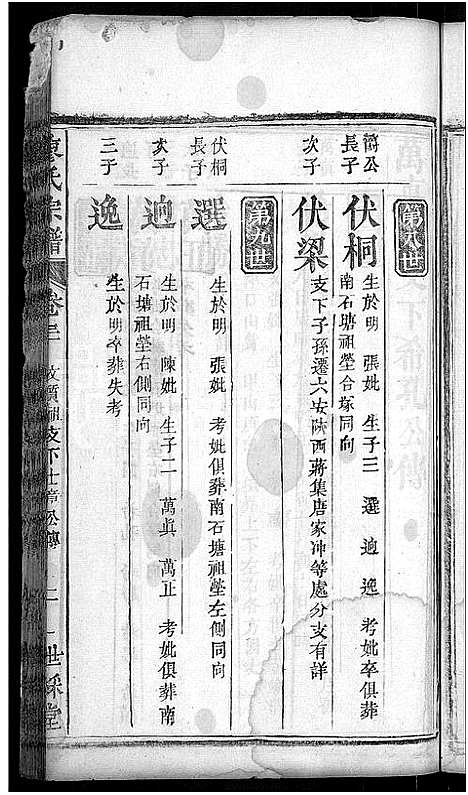 第八世
濟公長子
伏桐
生於明 張妣 生子三 選 逈 逸 考妣卒俱葬
南石塘祖塋合塚同向
次子
伏梁
支下子孫遷六安陝西蔣集唐家冲等處分支有詳
第九世
伏桐長子
選
生於明 張妣 考妣俱葬南石塘祖塋左側同向
次子
逈
生於明 陳妣 生子二 萬眞 萬正 考妣俱葬南
石塘祖塋右側同向
三子
逸
生於明卒葬失考
袁氏宗譜
卷三
支下士章公傳
世綵堂